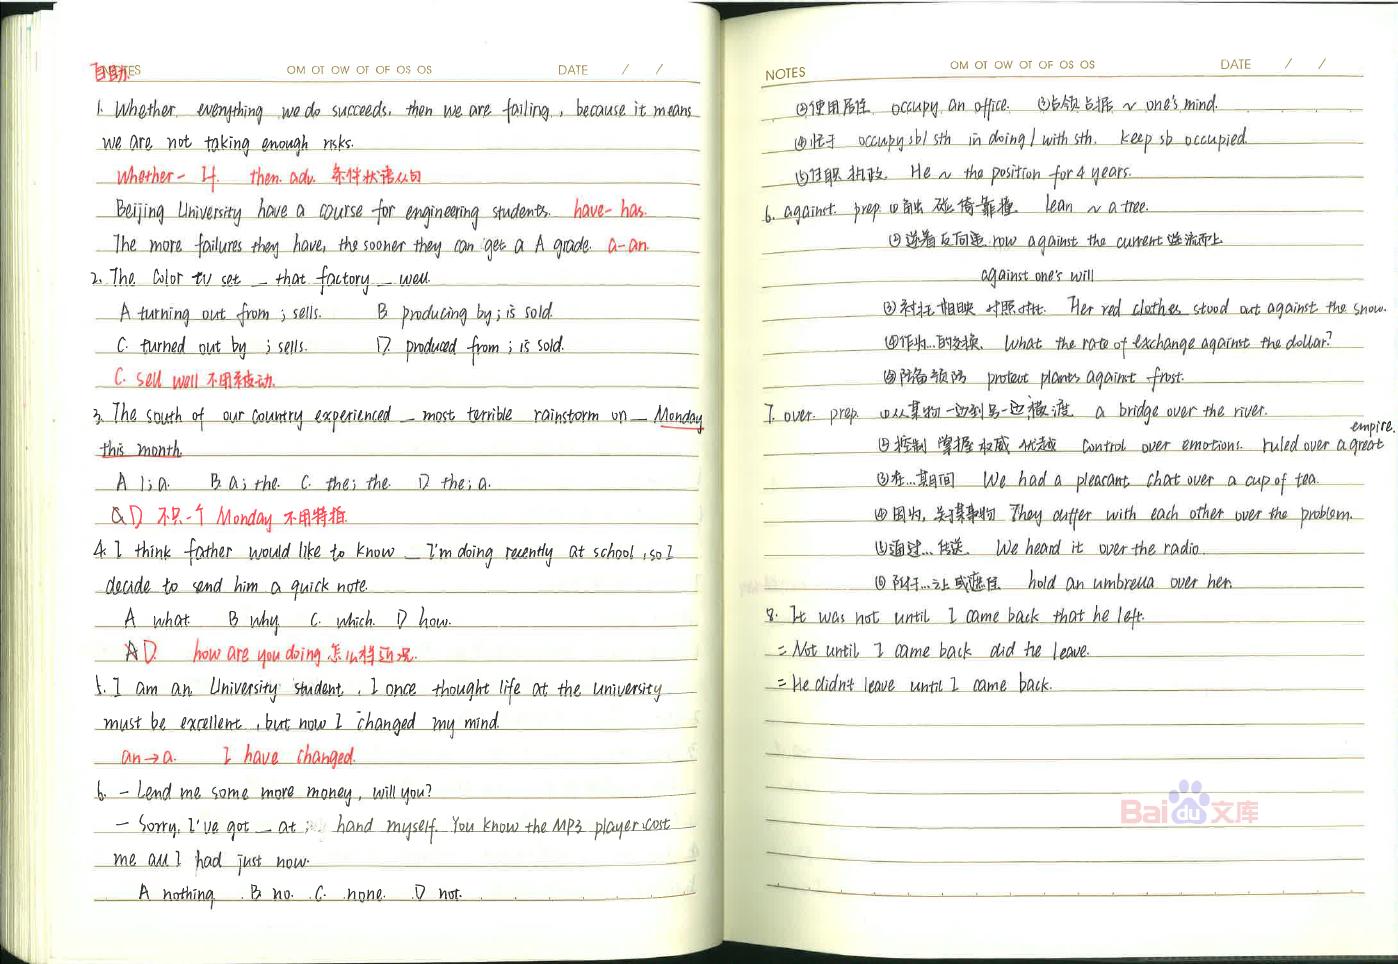 自助
NOTES OM OT OW OT OF OS OS DATE / /
1. Whether everything we do succeeds, then we are failing, because it means
we are not taking enough risks.
Whether - If. then. adv. 条件状语从句
Beijing University have a course for engineering students. have - has.
The more failures they have, the sooner they can get a A grade. a - an.
2. The Color tv set _ that factory _ well.
A turning out from ; sells. B producing by ; is sold.
C. turned out by ; sells. D. produced from ; is sold.
C. sell well 不用被动.
3. The south of our country experienced _ most terrible rainstorm on _ Monday
this month.
A 1 ; a. B a ; the. C. the ; the. D the ; a.
D 不只一个 Monday 不用特指.
4. I think father would like to know _ I'm doing recently at school, so I
decide to send him a quick note.
A what. B why C. which. D how.
A D. how are you doing 怎么样近况.
5. I am an University student, I once thought life at the university
must be excellent, but now I changed my mind.
an → a. I have changed.
6. - Lend me some more money, will you?
- Sorry, I've got _ at hand myself. You know the MP3 player cost
me all I had just now.
A nothing. B no. C. none. D not.
NOTES OM OT OW OT OF OS OS DATE / /
②使用居住 occupy an office. ③占领占据 ~ one's mind.
④忙于 occupy sb/sth in doing / with sth. keep sb occupied.
⑤任职执政. He ~ the position for 4 years.
6. against. prep ① 碰倚靠撞 lean ~ a tree.
②逆着反向逆. row against the current 逆流而上
against one's will
③衬托相映 对照对比. Her red clothes stood out against the snow.
④作为...的交换. What the rate of exchange against the dollar?
⑤防备预防 protect plants against frost.
7. over. prep. ①从某物一边到另一边横渡 a bridge over the river.
②控制 掌握权威 优越 control over emotions. ruled over a great
empire.
③在...期间 We had a pleasant chat over a cup of tea.
④因为,关于某事物 They differ with each other over the problem.
⑤通过...传送. We heard it over the radio.
⑥附于...之上或遮住 hold an umbrella over her.
8. It was not until I came back that he left.
= Not until I came back did he leave.
= He didn't leave until I came back.
Baidu文库